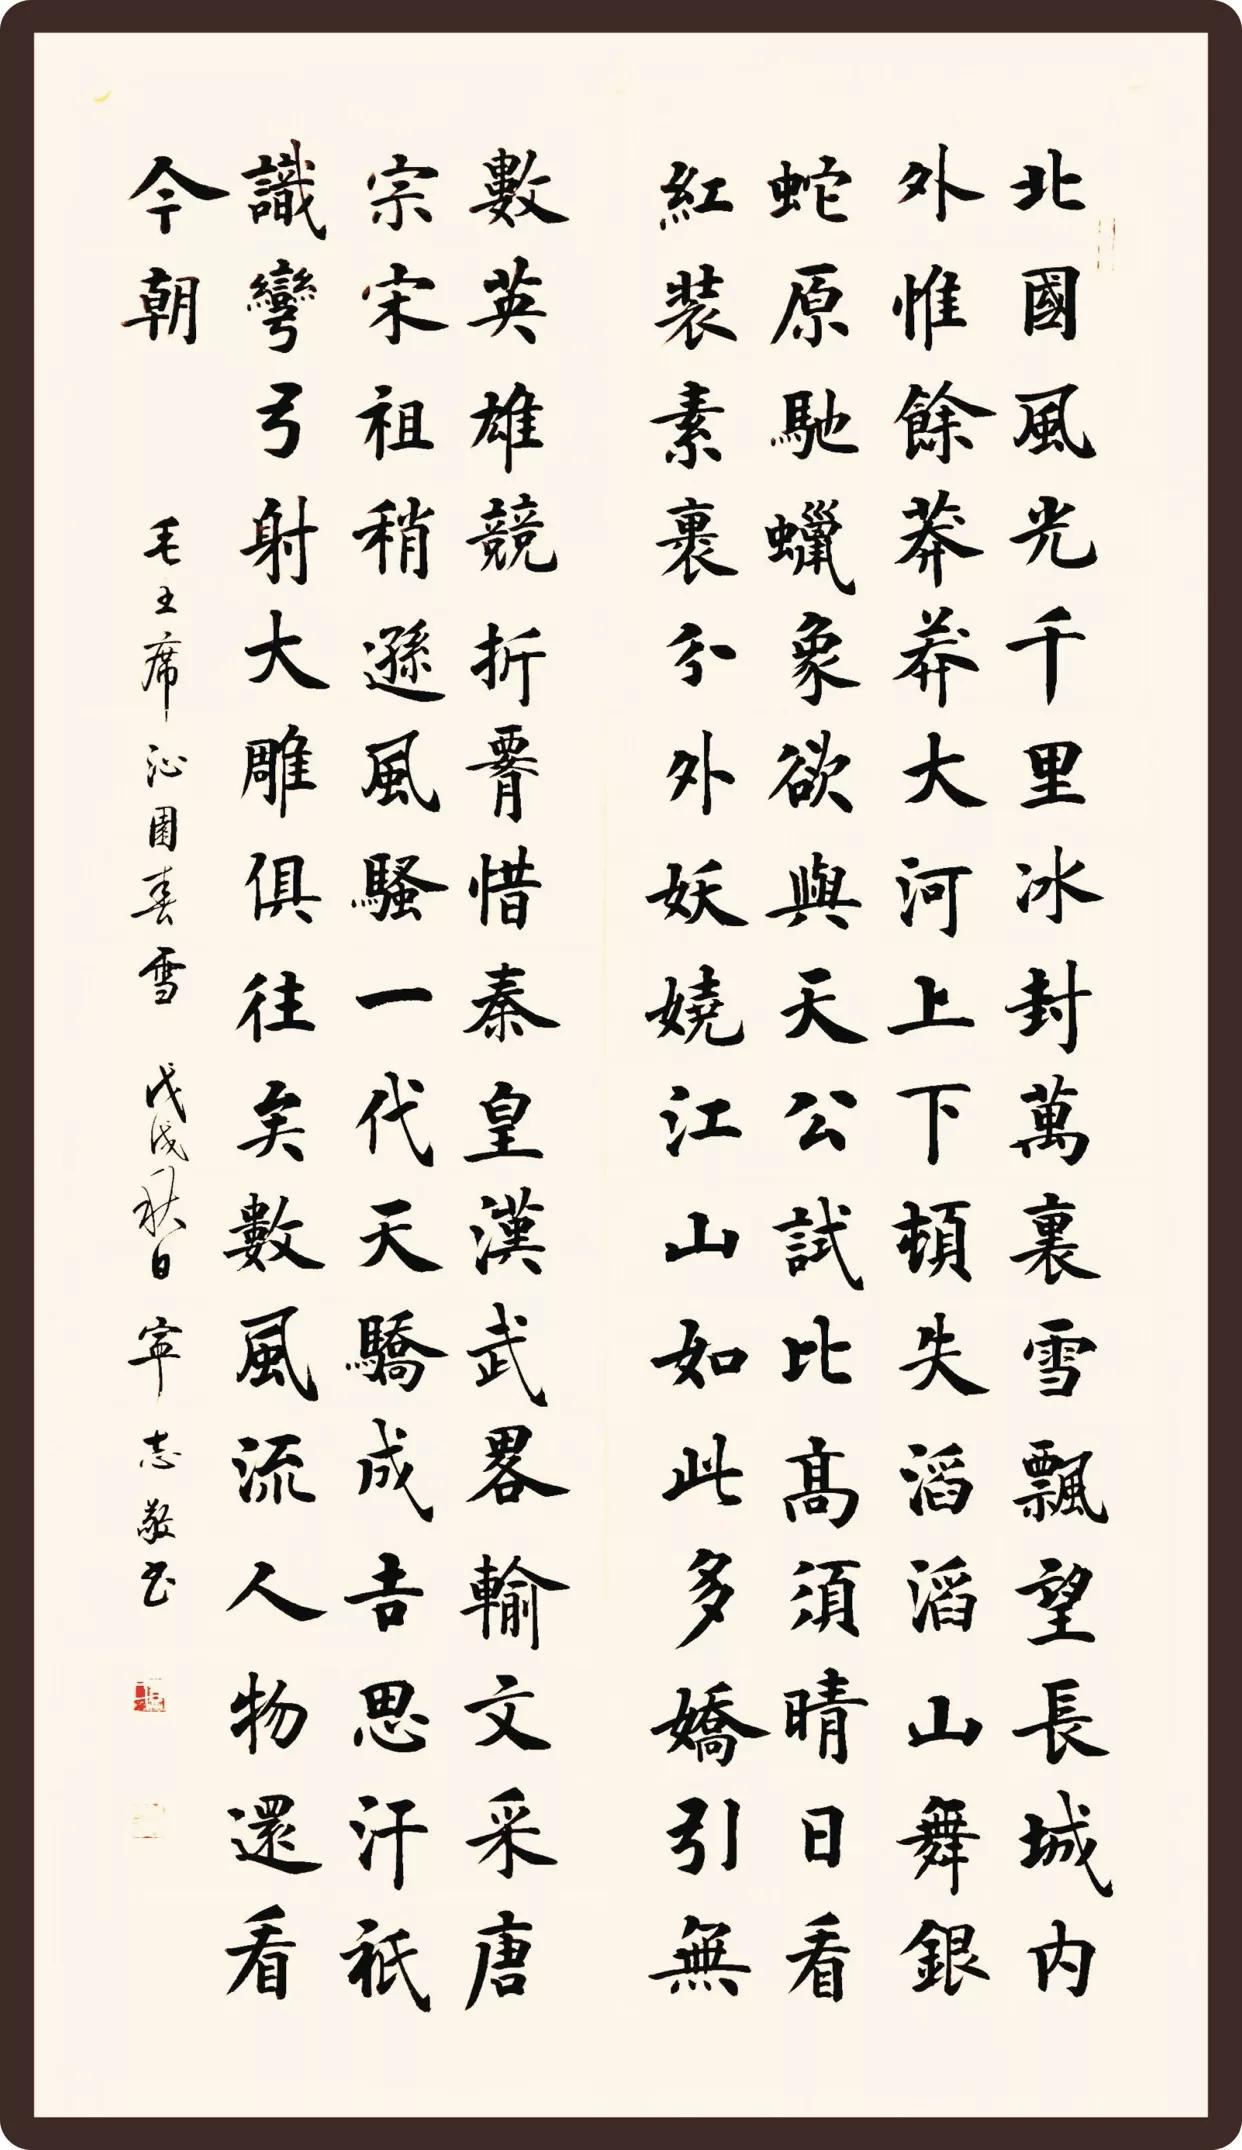 北國風光千里冰封萬裏雪飄望長城内
外惟餘莽莽大河上下頓失滔滔山舞銀
蛇原馳蠟象欲與天公試比高須晴日看
紅裝素裹分外妖嬈江山如此多嬌引無
數英雄競折腰惜秦皇漢武畧輸文采唐
宗宋祖稍遜風騷一代天驕成吉思汗祇
識彎弓射大雕俱往矣數風流人物還看
今朝
毛主席沁園春雪 戊戌秋日 寧志敬書